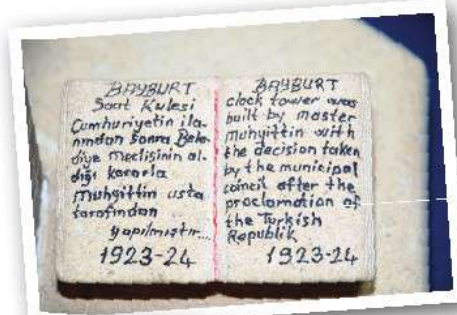 BAYBURT
Saat Kulesi
Cumhuriyetin ila-
nından sonra Bele-
diye meclisinin al-
dığı kararla
Muhyittin usta
tarafından
yapılmıştır....
1923-24
BAYBURT
clock tower was
built by master
muhyittin with
the decision taken
by the municipal
council after the
proclamation of
the Turkish
Republik
1923-24